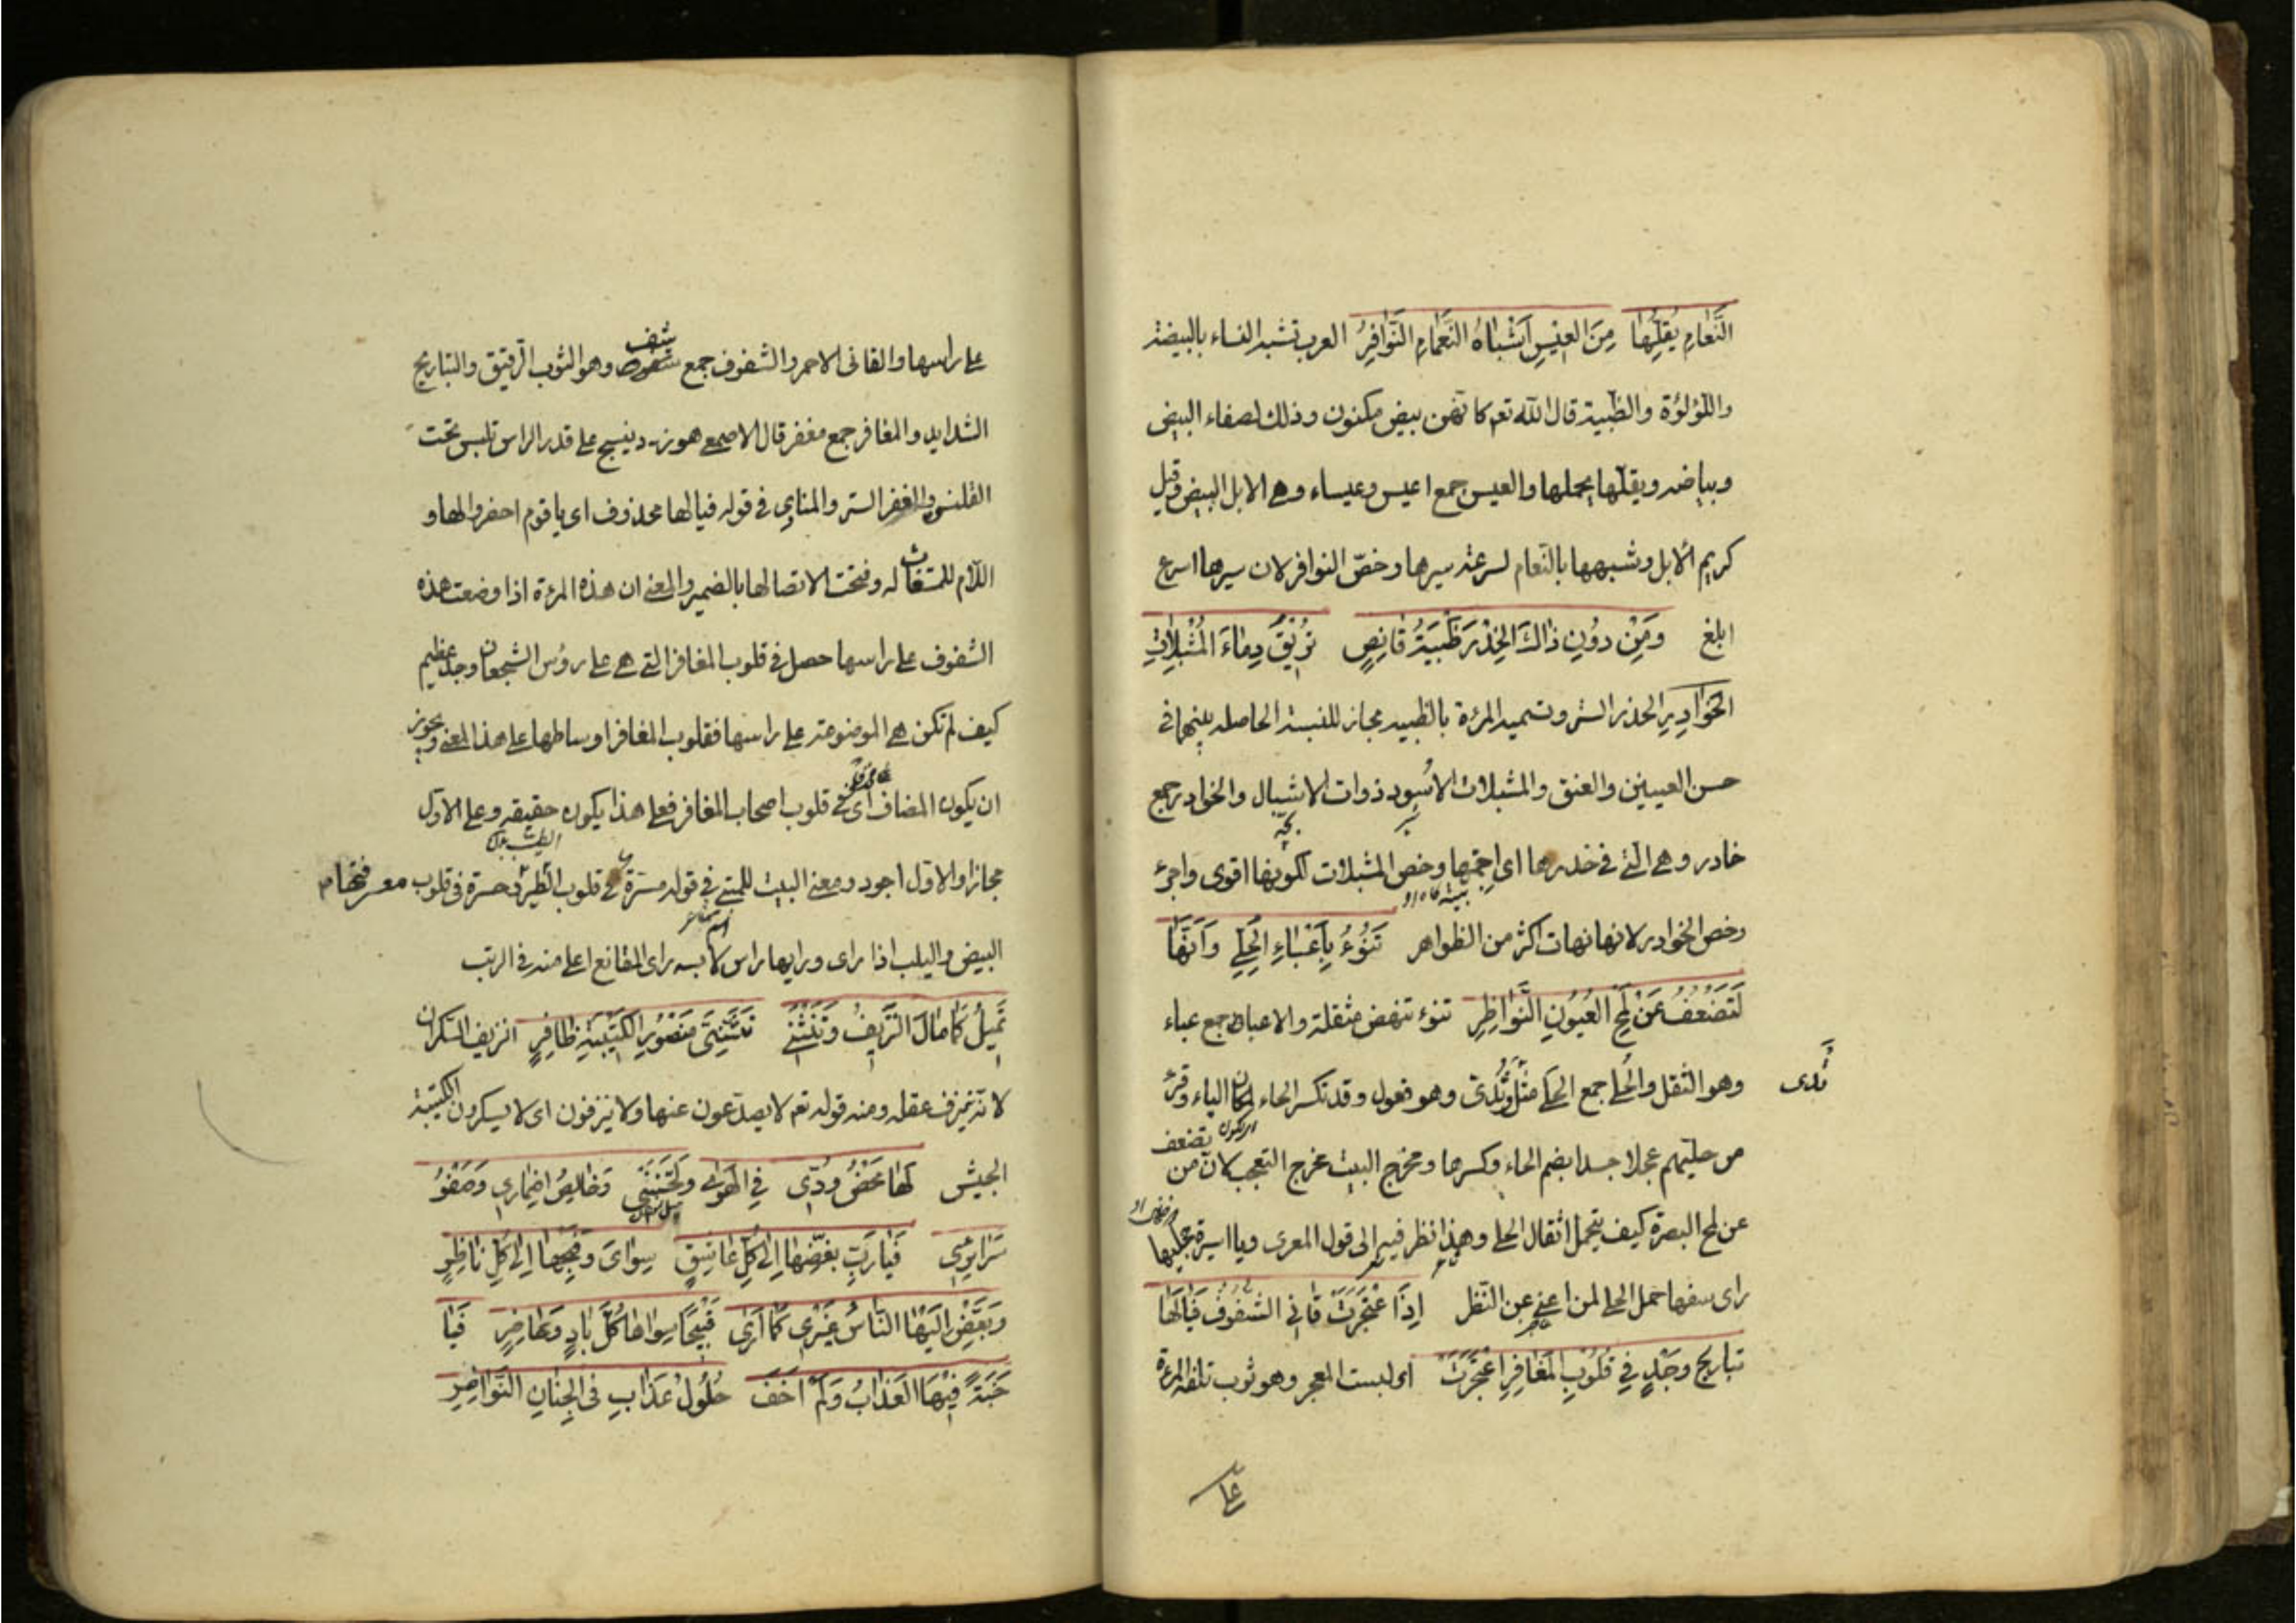 النَّعَامِ يُقِلُّهَا مِنَ العِيْسِ اَشْبَاهُ النَّعَامِ النَّوَافِرُ العرب تشبه النساء بالبيضة
واللؤلؤة والظبية قال الله تعم كانهن بيض مكنون وذلك لصفاء البيض
وبياضه ويقلها يحملها والعيس جمع اعيس وعيساء وهى الابل البيض وقيل
كريم الابل وشبهها بالنعام لسرعة سيرها وخصّ النوافر لان سيرها اسرع
ابلغ وَمِنْ دُوْنِ ذَاكَ الخِدْرِ ظَبْيَةُ قَانِصٍ تُرِيْقُ دِمَاءَ المُشْبِلَاتِ
الخَوَادِرِ الخدر الستر وتسميه المرءة بالظبيه مجاز للنسبة الحاصله بينهما فى
حسن العينين والعنق والمشبلات الاُسود ذوات الاشبال والخوادر جمع
خادر وهى التى فى خدرها اى اجمتها وخص المشبلات لكونها اقوى واجرء
بيشه كاه او
وخص الخوادر لانها اكثر من الظواهر تَنُوْءُ بِاَعْبَاءِ الحُلِيِّ وَاَنَّهَا
لَتَضْعُفُ عَنْ لَمْحِ العُيُوْنِ النَّوَاظِرِ تنوء تنهض مثقلة والاعباء جمع عباء
وهو الثقل والحلى جمع الحلى مثل ثُدى وهو فعول وقد تكسر الحاء لمكان الياء وقرئ
ثدى
من حليهم عجلا جسدا بضم الحاء وكسرها ومخرج البيت مخرج التعجب لان من يضعف
عن لمح البصرة كيف يتحمل اثقال الحلى وهذا نظر فيه الى قول المعرى ويا اسيرة حجليها
راى سفها حمل الحلى لمن اعيى عن النظر اِذَا اعْتَجَرَتْ قَانِي الشُّفُوْفِ فَيَالَهَا
تَبَارِيْحَ وَجْدٍ فِي قُلُوْبِ المَغَافِرِ اعْتَجَرَتْ اى لبست المعجر وهو ثوب تلفه المرءة
على
على راسها والقانى الاحمر والشفوف جمع شف وهو الثوب الرقيق والتباريح
الشدايد والمغافر جمع مغفر قال الاصمعى هو زرد ينسج على قدر الراس تلبس تحت
القلنسوة والغفر الستر والمنادى فى قوله فيالها محذوف اى يا قوم احضروا لها و
اللام للمستغاث له وفتحت لاتصالها بالضمير والمعنى ان هذه المرءة اذا وضعت هذه
الشفوف على راسها حصل فى قلوب المغافر التى هى على رؤس الشجعان وجد عظيم
كيف لم تكن هى الموضوعة على راسها فقلوب المغافر اوساطها على هذا المعنى ويجوز
ان يكون المضاف اى فى قلوب اصحاب المغافر فعلى هذا يكون حقيقه وعلى الاول
مجازا والاول اجود ومعنى البيت للمتنبى فى قوله مسرة فى قلوب الطيب مفرقها وحسرة فى قلوب
البيض واليلب اذا راى وراها راس لابسه راى المقانع اعلى منه فى الرتب
تَمِيْلُ كَمَا مَالَ النَّزِيْفُ وَتَنْثَنِي تَثَنِّيَ مَنْصُوْرِ الكَتِيْبَةِ ظَافِرِ النزيف السكران
لا تنزف عقله ومنه قوله تعم لا يصدعون عنها ولا ينزفون اى لا يسكرون الكتيبة
الجيش لَهَا مَحْضُ وُدِّي فِي الهَوَى وَتَحَنُّنِي وَخَالِصُ اِضْمَارِي وَصَفْوُ
سَرَايِرِي فَيَا رَبِّ بَغِّضْهَا اِلَى كُلِّ عَاشِقٍ سِوَايَ وَقَبِّحْهَا اِلَى كُلِّ نَاظِرِ
وَبَغِّضْ اِلَيْهَا النَّاسَ غَيْرِي كَمَا اَرَى قَبِيْحًا سِوَاهَا كُلَّ بَادٍ وَحَاضِرِ فَيَا
جَنَّةً فِيْهَا العَذَابُ وَلَمْ اَخَفْ حُلُوْلَ عَذَابٍ فِى الجِنَانِ النَّوَاضِرِ